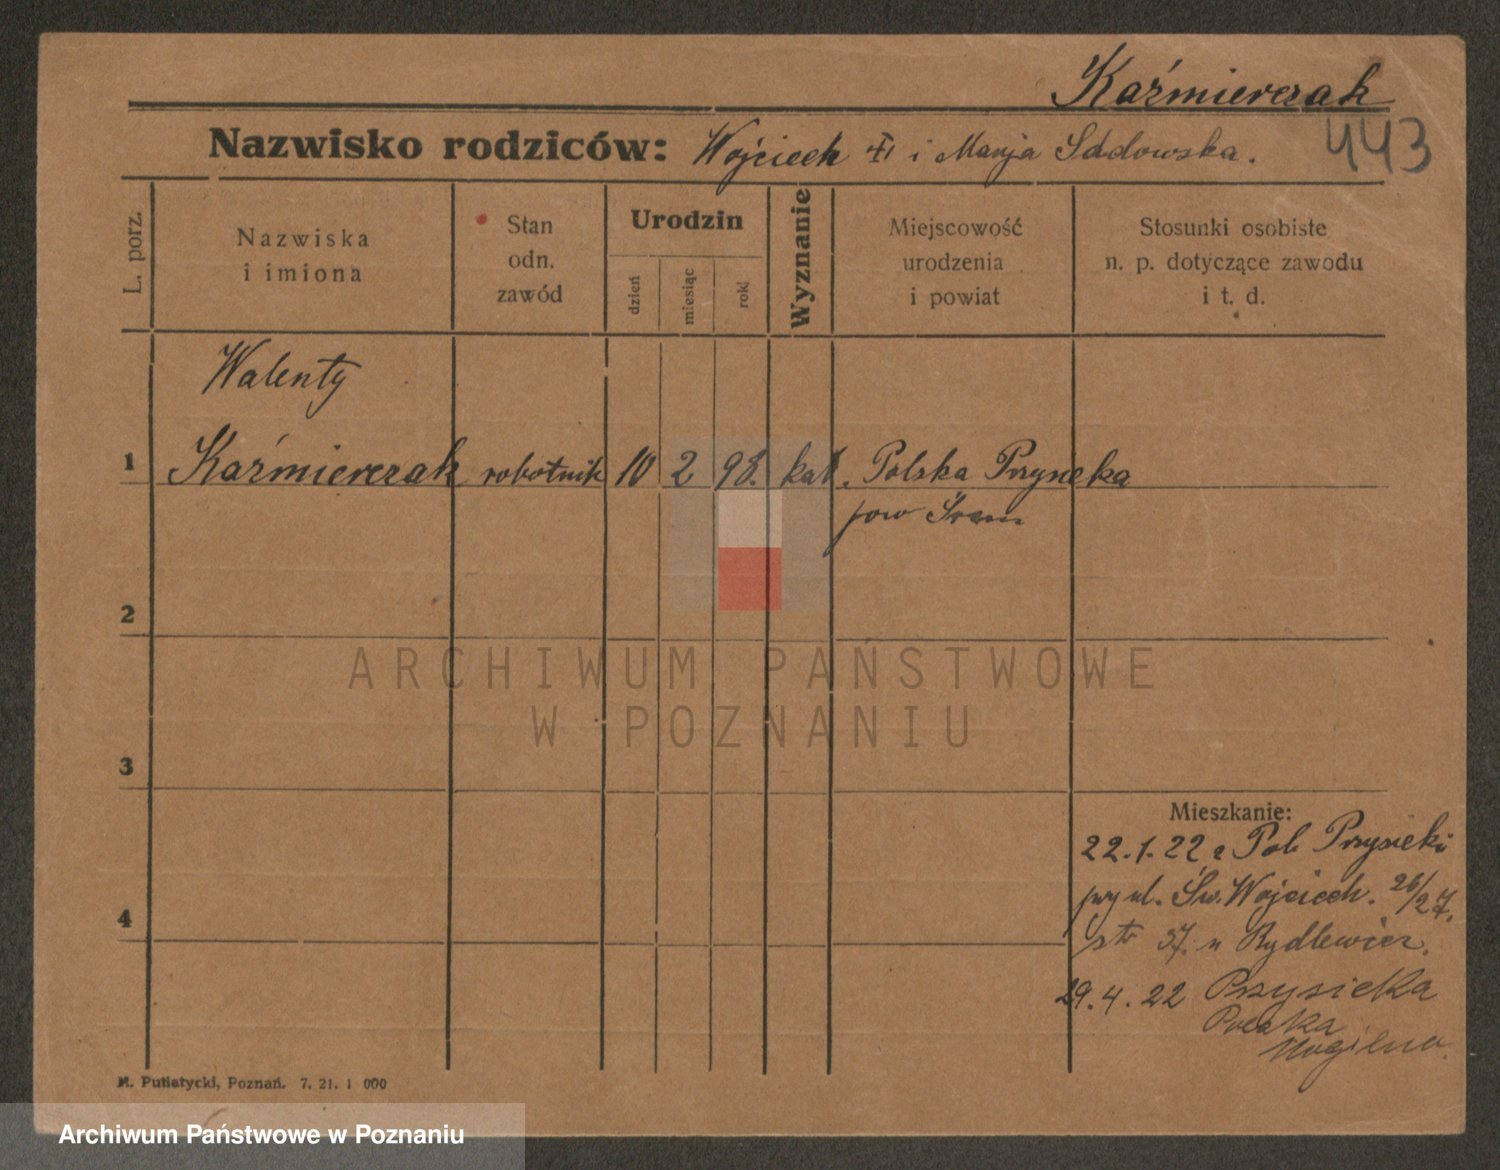 Kaźmierczak
Nazwisko rodziców: Wojciech i Marja Sadowska.
443
L. porz.
Nazwiska
i imiona
Stan
odn.
zawód
Urodzin
dzień
miesiąc
rok
Wyznanie
Miejscowość
urodzenia
i powiat
Stosunki osobiste
n. p. dotyczące zawodu
i t. d.
Walenty
1 Kaźmierczak robotnik 10 2 98. kat. Polska Przysieka
pow Śrem
2
ARCHIWUM PAŃSTWOWE
W POZNANIU
3
Mieszkanie:
22.1.22 z Pol Przysieki
przy ul. Św. Wojciech. 26/27.
4
str 37. u Rydlewicz.
29.4.22 Przysieka
Polska
Mogilno.
M. Putiatycki, Poznań. 7. 21. 1 000
Archiwum Państwowe w Poznaniu